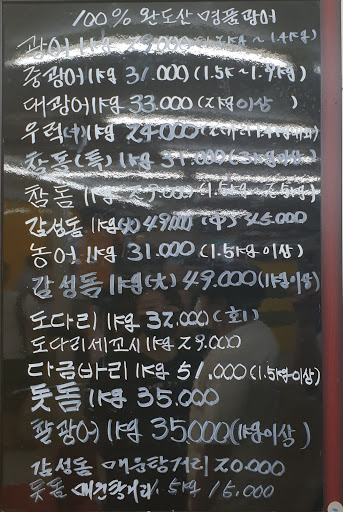 100% 완도산 명품광어
광어 1kg 29.000 1.4kg)
중광어 1kg 31.000 (1.5k~1.9kg)
대광어 1kg 33.000 (2kg이상 )
우럭(中) 1kg 24.000
참돔(특) 1kg 37.000 (3kg이상)
참돔 1kg 29.000 (1.5kg~2.5kg)
감성돔 1kg(小) 49.000 (中) 45.000
농어 1kg 31.000 (1.5kg이상)
감성돔 1kg(大) 49.000 (1kg이상)
도다리 1kg 32.000 (호1)
도다리세꼬시 1kg 29.000
다금바리 1kg 51.000 (1.5kg이상)
돗돔 1kg 35.000
팔광어 1kg 35.000 (1kg이상)
감성돔 매운탕거리 20.000
돗돔 매운탕거리 .5kg 15.000